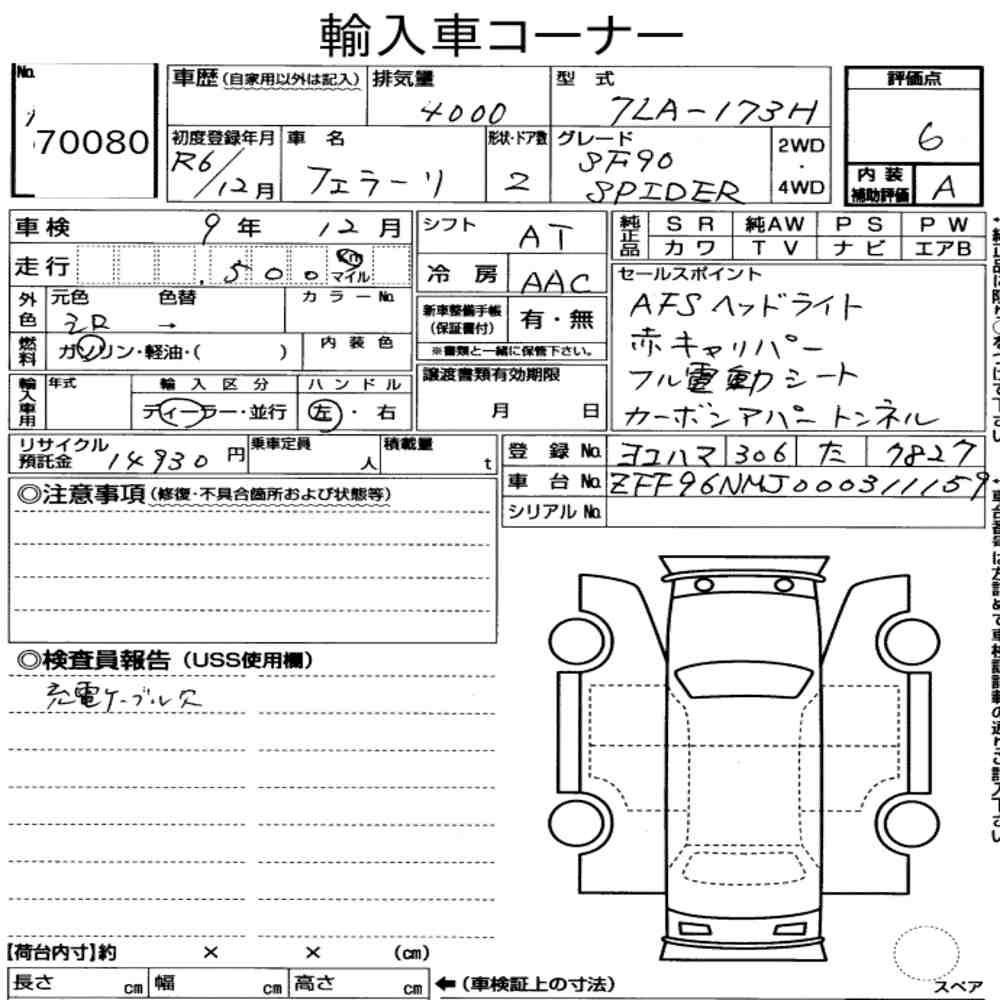 輸入車コーナー
No. 70080
車歴(自家用以外は記入) 排気量 4000 型式 7LA-173H 評価点 6
初度登録年月 R6/12月 車名 フェラーリ 形状・ドア数 2 グレード SF90 SPIDER 2WD・4WD 内装補助評価 A
車検 9年 12月 シフト AT 純正品 SR 純AW PS PW
カワ TV ナビ エアB
走行 .500 Km マイル 冷房 AAC
外色 元色 色替 カラーNo. 新車整備手帳(保証書付) 有・無
→
※書類と一緒に保管下さい。
燃料 ガソリン・軽油・( ) 内装色
セールスポイント
AFSヘッドライト
赤キャリパー
フル電動シート
カーボンアパートンネル
輸入車用 年式 輸入区分 ハンドル 譲渡書類有効期限
ディーラー・並行 左・右 月 日
リサイクル預託金 14930円 乗車定員 人 積載量 t
登録No. ヨコハマ 306 た 9827
車台No. ZFF96NMJ000311159
シリアルNo.
◎注意事項(修復・不具合箇所および状態等)
◎検査員報告(USS使用欄)
充電ケーブル欠
【荷台内寸】約 × × (cm)
長さ cm 幅 cm 高さ cm ←(車検証上の寸法)
スペア